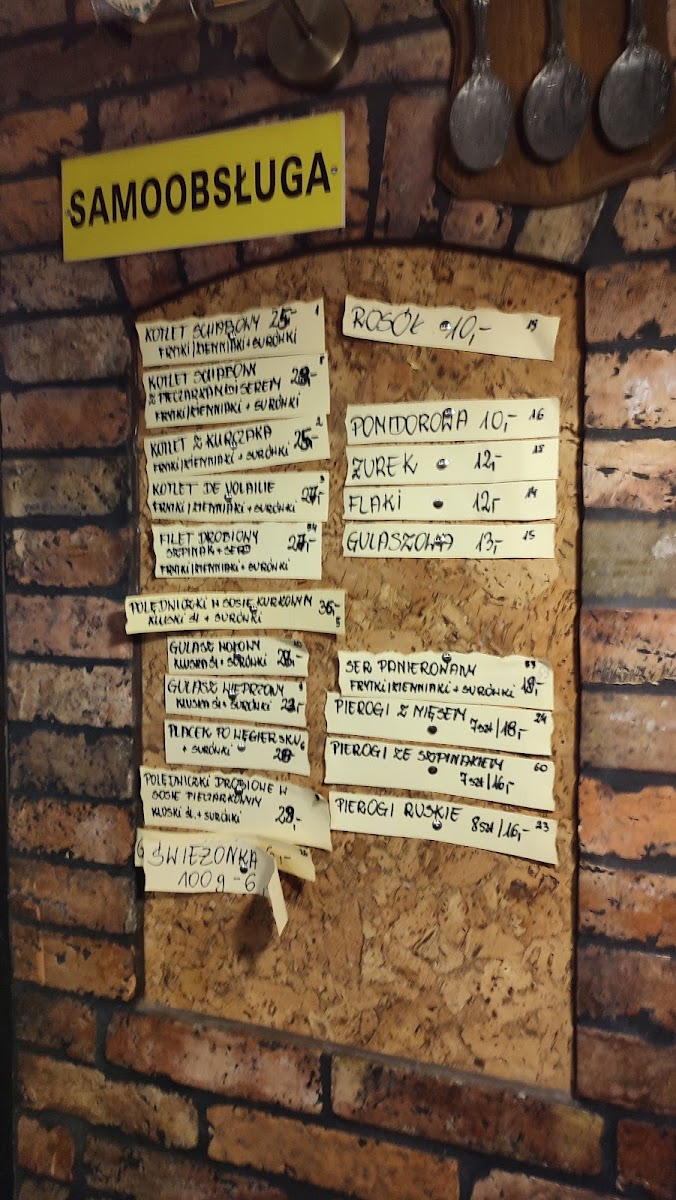 SAMOOBSŁUGA
KOTLET SCHABOWY 25,- 1
FRYTKI/ZIEMNIAKI + SURÓWKI
KOTLET SCHABOWY
Z PIECZARKAMI I SEREM 28,-
FRYTKI/ZIEMNIAKI + SURÓWKI
KOTLET Z KURCZAKA 25,- 2
FRYTKI/ZIEMNIAKI + SURÓWKI
KOTLET DE VOLAILLE 27,- 3
FRYTKI/ZIEMNIAKI + SURÓWKI
FILET DROBIOWY 34
SZPINAK + SER 27,-
FRYTKI/ZIEMNIAKI + SURÓWKI
POLĘDNICZKI W SOSIE KURKOWYM 36,-
KLUSKI ŚL + SURÓWKI 5
GULASZ WOŁOWY
KLUSKI ŚL + SURÓWKI
GULASZ WIEPRZOWY
KLUSKI ŚL + SURÓWKI
PLACEK PO WĘGIERSKU 6
+ SURÓWKI
POLĘDNICZKI DROBIOWE W
SOSIE PIECZARKOWYM
KLUSKI ŚL. + SURÓWKI 29,-
ŚWIEŻONKA
100g - 6
ROSÓŁ 10,-
POMIDOROWA 10,- 16
ŻUREK 12,-
FLAKI 12,- 14
GULASZOWA 13,- 15
SER PANIEROWANY
FRYTKI/ZIEMNIAKI + SURÓWKI 18,-
PIEROGI Z MIĘSEM 7szt/18,- 24
PIEROGI ZE SZPINAKIEM 60
7szt/16,-
PIEROGI RUSKIE 8szt/16,- 23